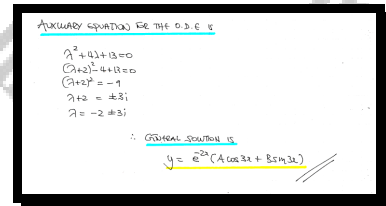 AUXILIARY EQUATION FOR THE O.D.E IS
λ² + 4λ + 13 = 0
(λ+2)² - 4 + 13 = 0
(λ+2)² = -9
λ+2 = ±3i
λ = -2 ±3i
∴ GENERAL SOLUTION IS
y = e^{-2x} (A cos3x + B sin3x)